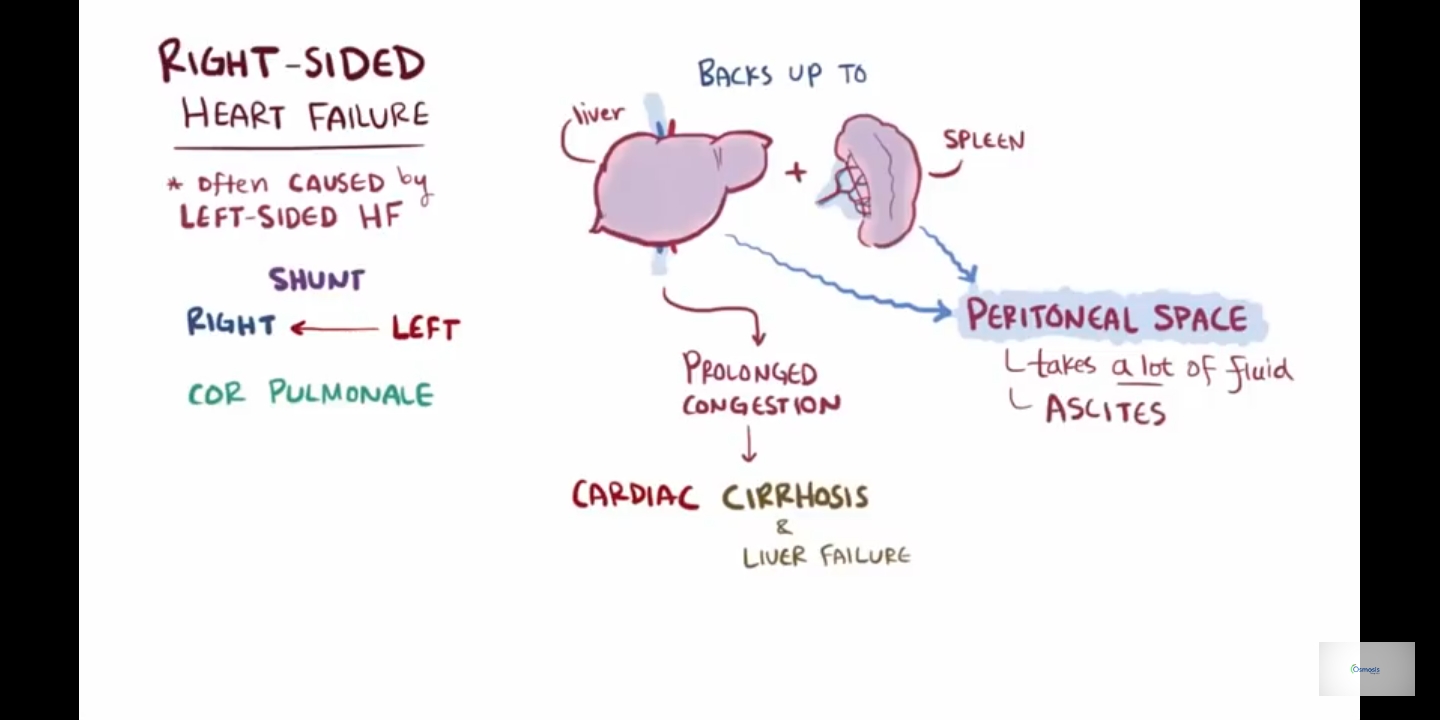 RIGHT-SIDED
HEART FAILURE
* often CAUSED by
LEFT-SIDED HF
SHUNT
RIGHT ← LEFT
COR PULMONALE
BACKS UP TO
liver
+
SPLEEN
PERITONEAL SPACE
takes a lot of fluid
ASCITES
PROLONGED
CONGESTION
CARDIAC CIRRHOSIS
&
LIVER FAILURE
Osmosis